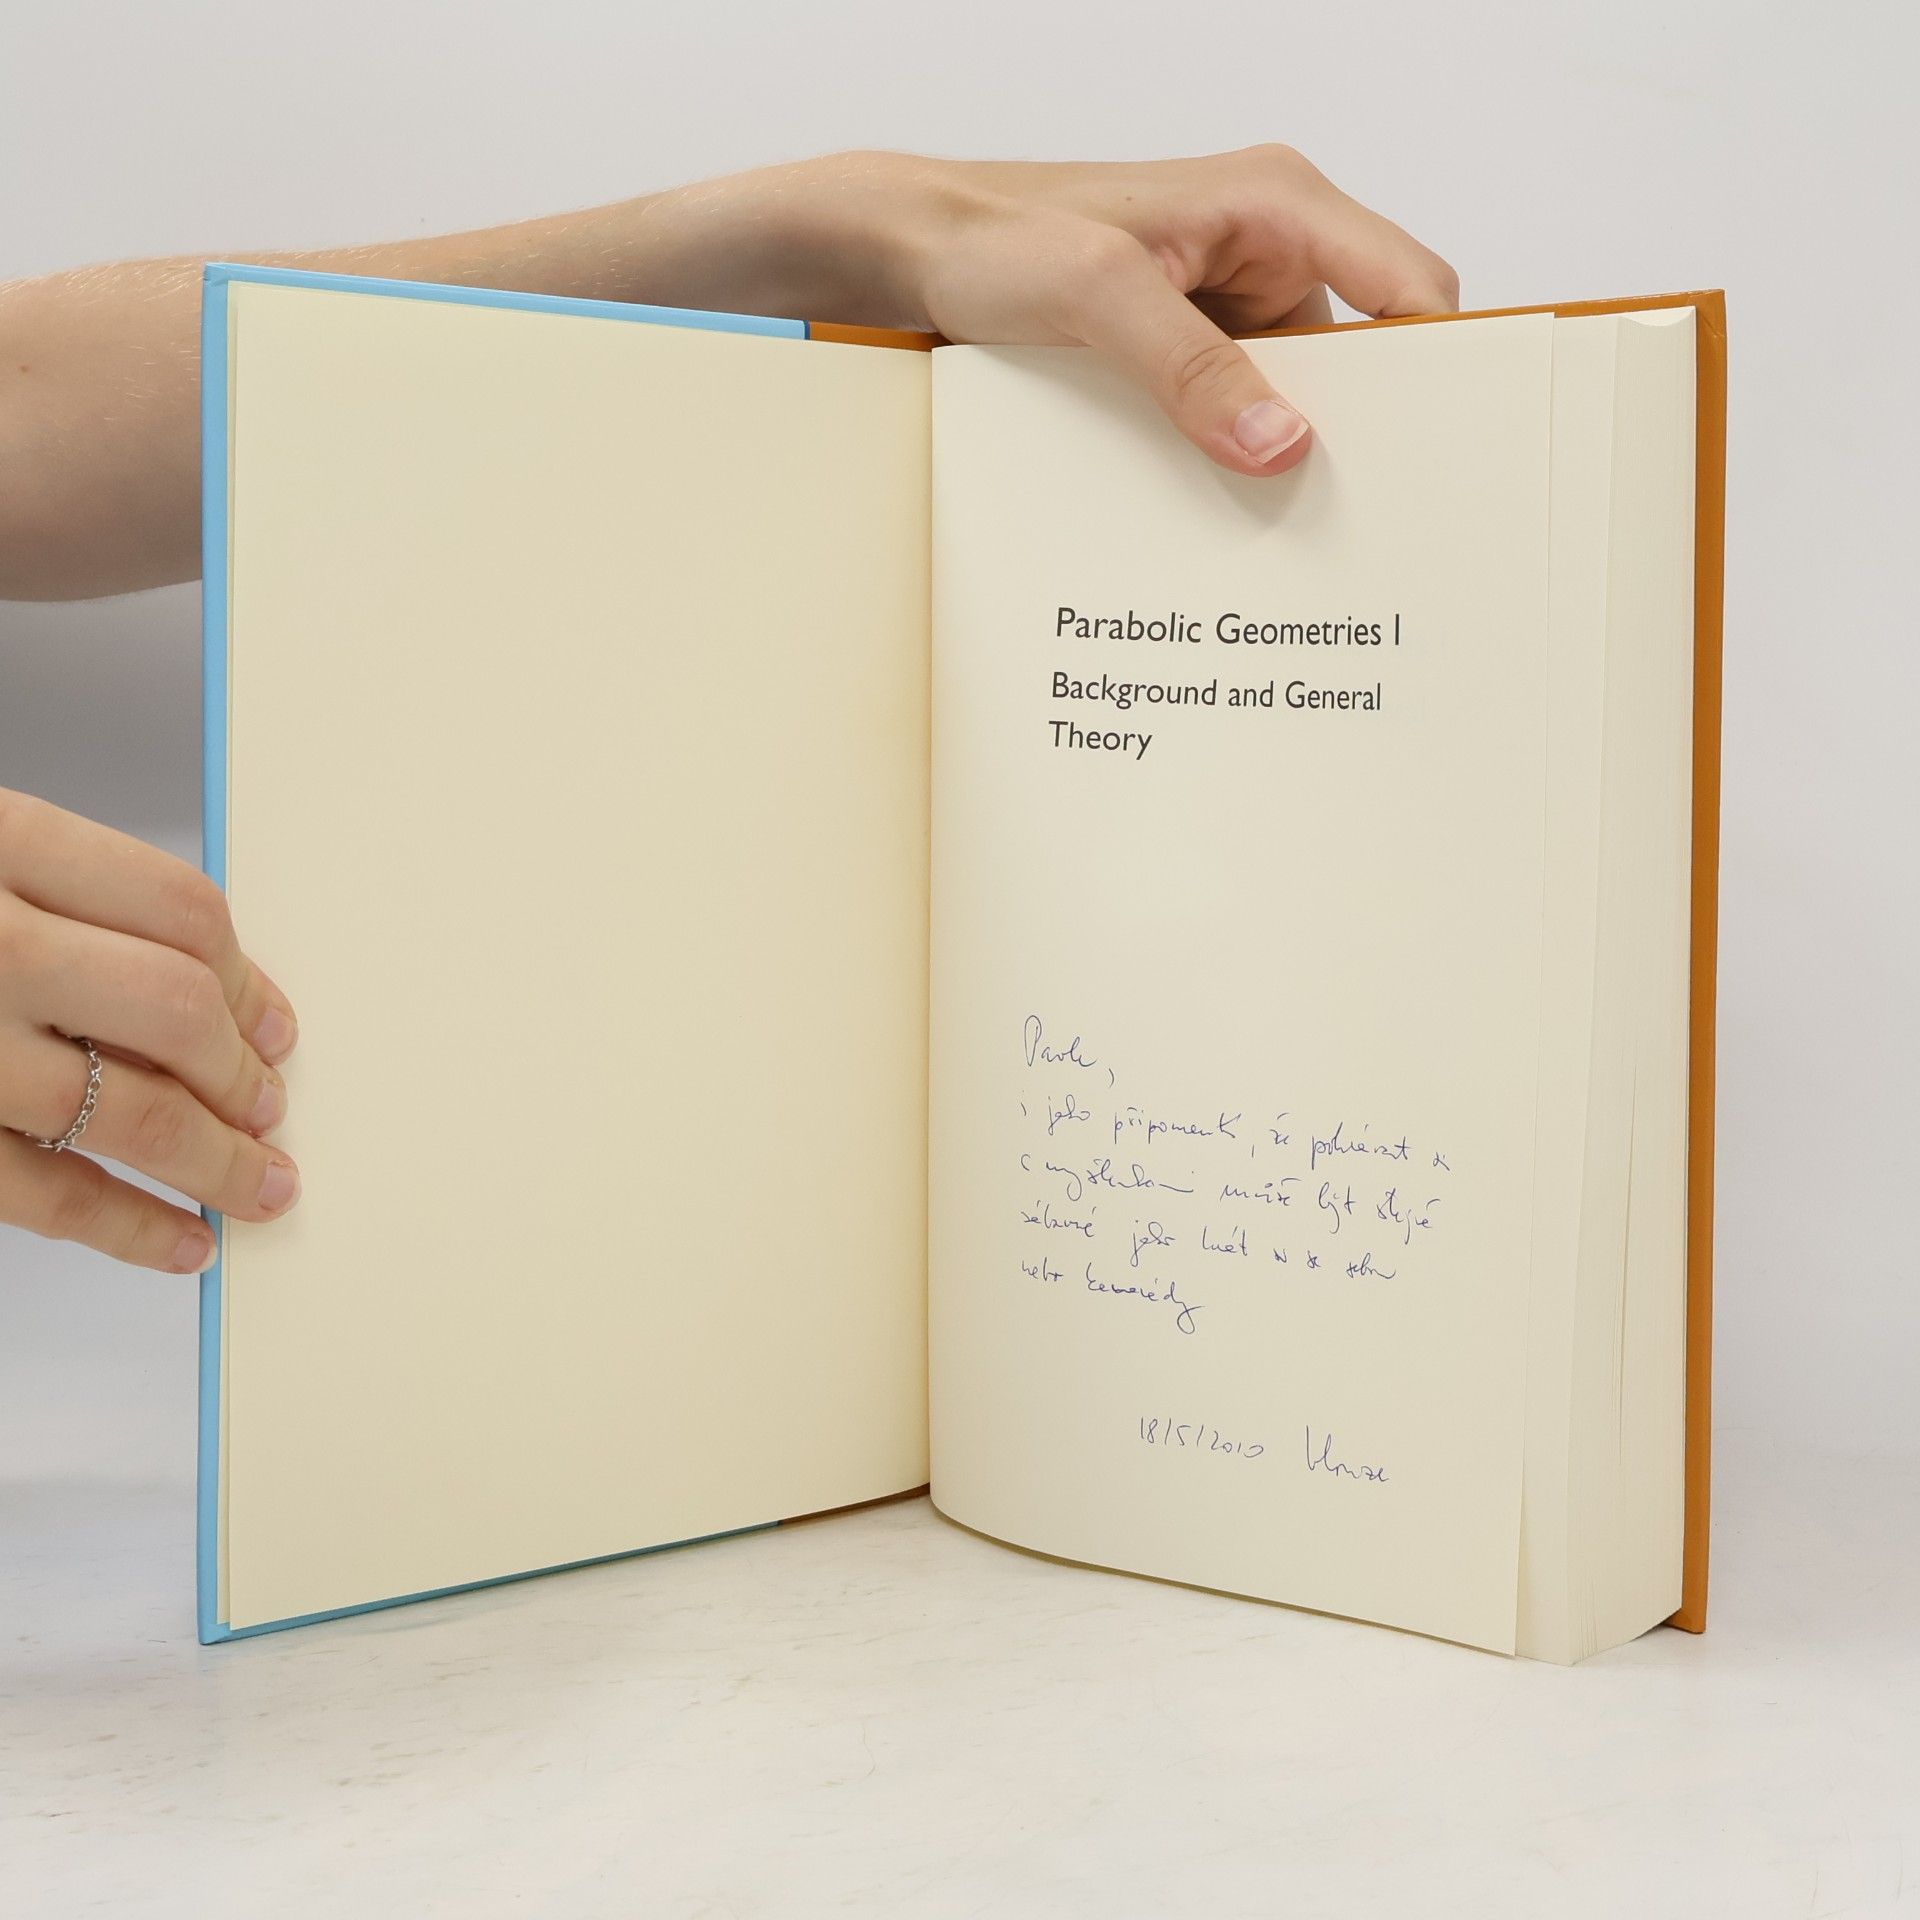 Parabolic Geometries I
Background and General
Theory
Pavle,
i jako připomenutí, že pohrávat si
s myšlenkami může být stejně
zábavné jako hrát si se sebou
nebo kamarády
18/5/2010 Honza